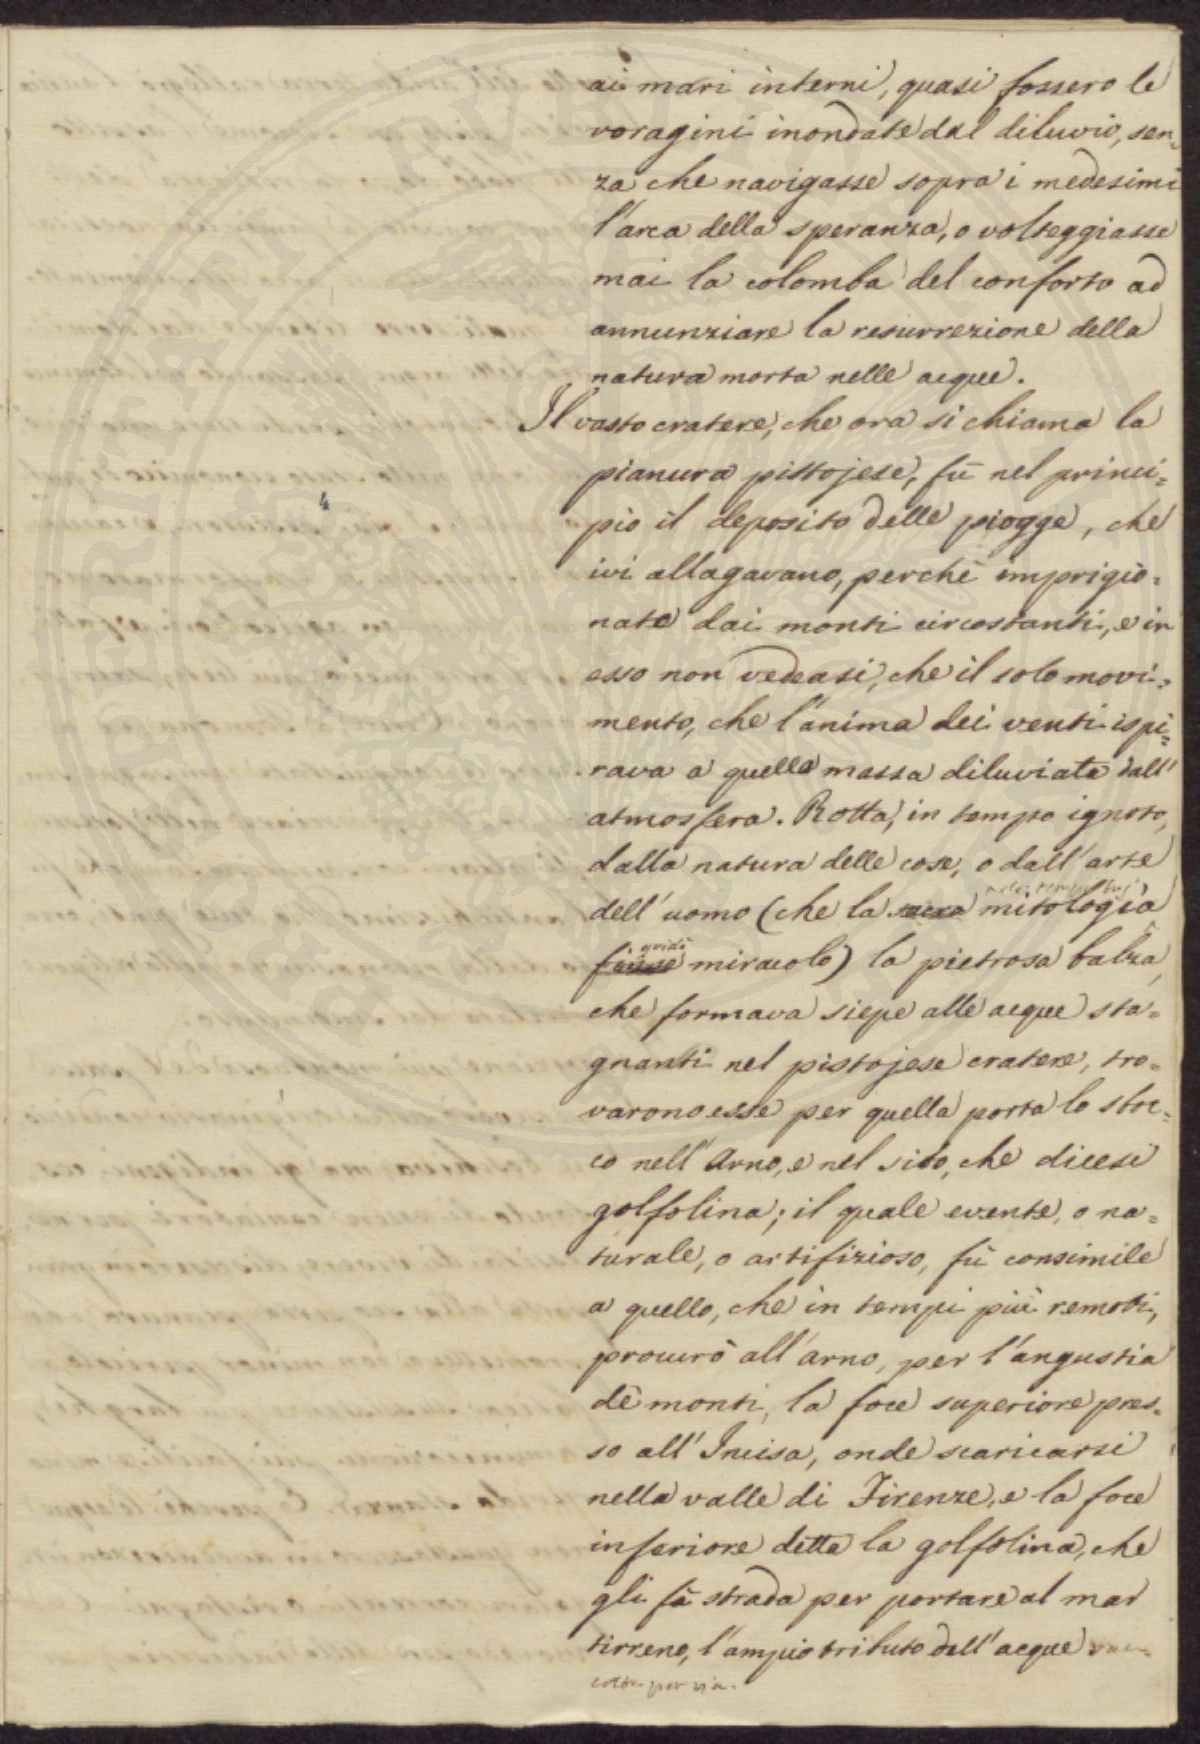 ai mari interni, quasi fossero le
voragini inondate dal diluvio, sen=
za che navigasse sopra i medesimi
l'arca della speranza, o volteggiasse
mai la colomba del conforto ad
annunziare la resurrezione della
natura morta nelle acque.
Il vasto cratere, che ora si chiama la
pianura pistojese, fù nel princi=
4
pio il deposito delle piogge, che
ivi allagavano, perchè imprigio=
nate dai monti circostanti, e in
esso non vedeasi, che il solo movi=
mento, che l'anima dei venti ispi=
rava a quella massa diluviata dall'
atmosfera. Rotta, in tempo ignoto,
dalla natura delle cose, o dall'arte
dell'uomo (che la mitologia
gridò
miracolo) la pietrosa balza,
che formava siepe alle acque sta=
gnanti nel pistojese cratere, tro=
varono esse per quella porta lo sboc=
co nell'Arno, e nel sito, che dicesi
golfolina; il quale evento, o na=
turale, o artifizioso, fù consimile
a quello, che in tempi più remoti,
procurò all'Arno, per l'angustia
de monti, la foce superiore pres=
so all'Incisa, onde scaricarsi
nella valle di Firenze, e la foce
inferiore detta la golfolina, che
gli fà strada per portare al mar
tirreno, l'ampio tributo dell'acque
per via.